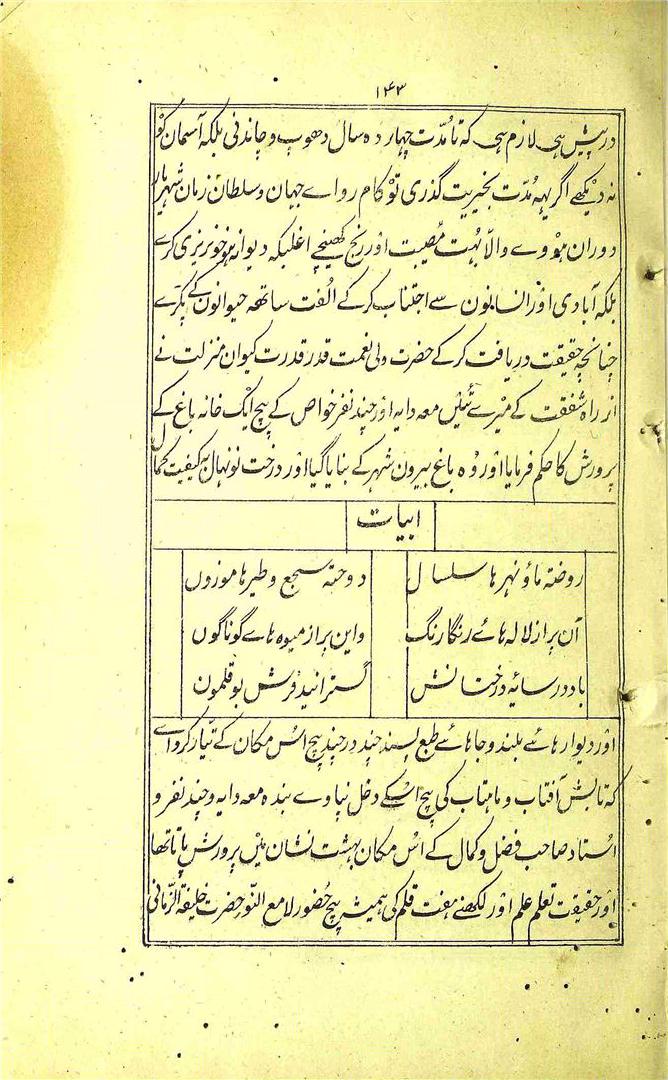 ۱۴۳
درپیش ہی لازم ہی کہ تا مُدّت چہاردہ سال دھوپ و چاندنی بلکہ آسمان کو
نہ دیکھے اگر یہہ مُدّت بخیریت گذری تو کام روائے جہان و سلطان زمان شہریار
دوران ہووے والّا بہُت مُصیبت اور رنج کھینچے اغلبکہ دیوانہ ہو خونریزی کرے
بلکہ آبادی اور انسانون سے اجتناب کرکے الُفت ساتھہ حیوانون کے پکڑے
چنانچہ حقیقت دریافت کرکے حضرت ولی نعمت قدر قدرت کیوان منزلت نے
از راہ شفقت کے میرے تئیں معہ دایہ اور چند نفر خواص کے بیچ ایک خانہ باغ کے
پرورش کا حکم فرمایا اور وُہ باغ بیرون شہر کے بنایا گیا اور درخت نونہال بہ کیفیت کمال
ابیات
روضتہ ماؤ نہرہا سلسال
دوحتہ سجع و طیرہا موزوں
آن پر از لالہ ہائے رنگارنگ
و این پر از میوہ ہاے گوناگوں
باد در سایہ درختانش
گسترانید فرش بوقلمون
اور دیوارہائے بلند و جاہائے طبع پسند چند در چند بیچ اُس مکان کے تیّار کروائے
کہ تابش آفتاب و ماہتاب کی بیچ اُسکے دخل نپاوے بندہ معہ دایہ و چند نفر و
اُستاد صاحب فضل و کمال کے اُس مکان بہشت نشان میں پرورش پاتا تھا
اور حقیقت تعلم علم اور لکھنے ہفت قلم کی ہمیشہ بیچ حُضور لامع النّور حضرت خلیفۃ الرّحمانی